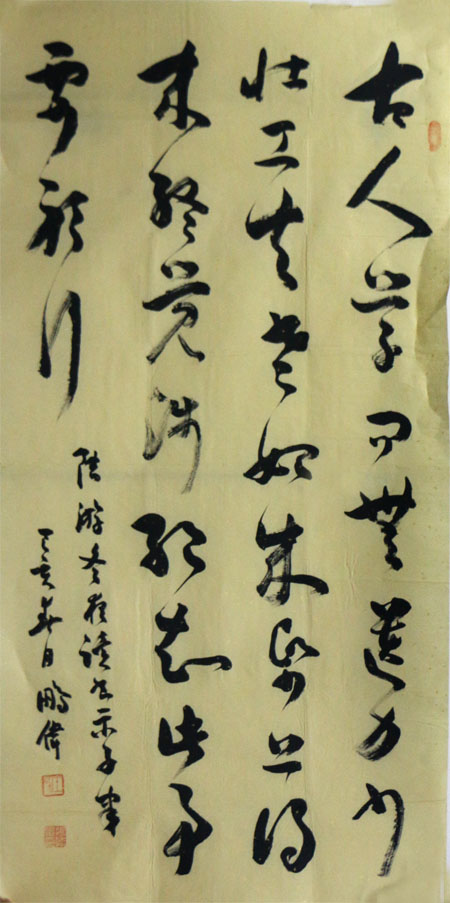 古人学问無遗力少
壮工夫老始成纸上得
来终觉浅绝知此事
要躬行
陆游冬夜读书示子聿
亥春日鵬偉